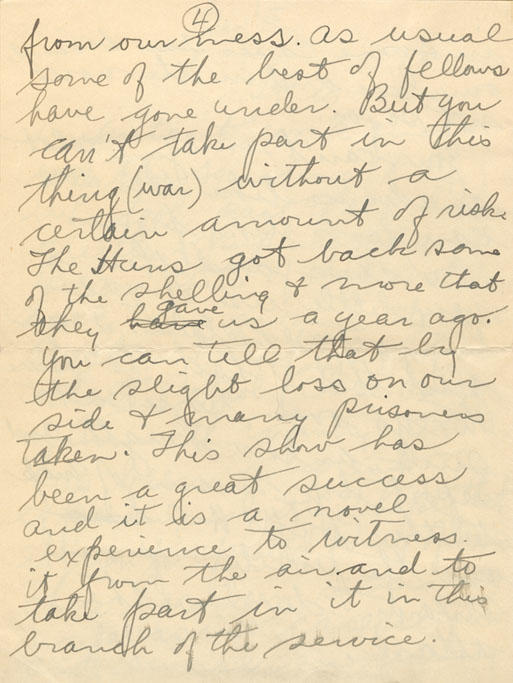 4
from our mess. As usual
some of the best of fellows
have gone under. But you
can't take part in this
thing (war) without a
certain amount of risk.
The Huns got back some
of the shelling & more that
they have gave us a year ago.
You can tell that by
the slight loss on our
side & many prisoners
taken. This show has
been a great success
and it is a novel
experience to witness.
it from the air and to
take part in it in this
branch of the service.